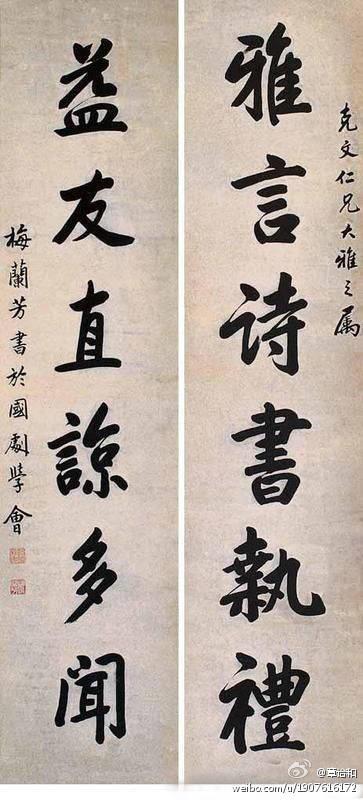 克文仁兄大雅之属
雅言诗書執禮
益友直諒多聞
梅蘭芳書於國劇學會
@章诒和
weibo.com/u/1907616172